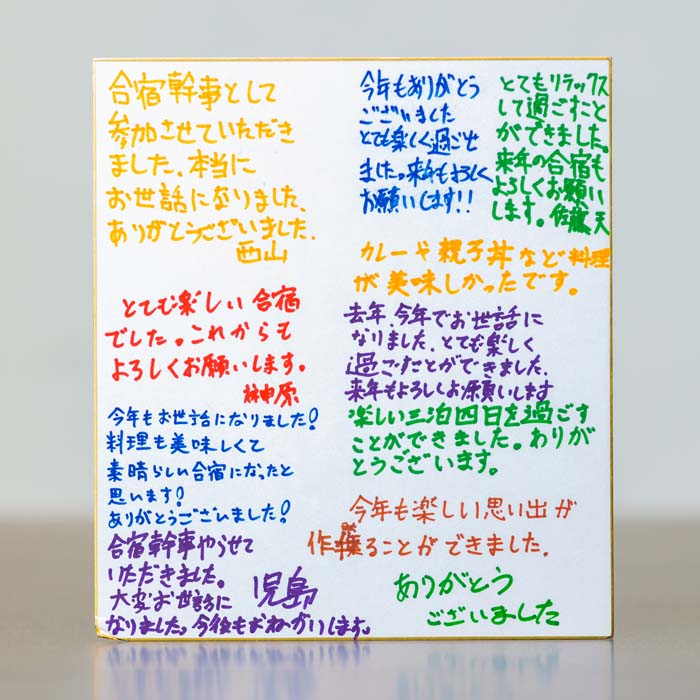 合宿幹事として
参加させていただき
ました.本当に
お世話になりました.
ありがとうございました.
西山
とても楽しい合宿
でした。これからも
よろしくお願いします。
榊原
今年もお世話になりました!
料理も美味しくて
素晴らしい合宿になったと
思います!
ありがとうございました!
合宿幹事やらせて
いただきました。
大変お世話に
なりました。今後もおねがいします。
児島
今年もありがとう
ございました
とても楽しく過ごせ
ました。来年もよろしく
お願いします!!
とてもリラックス
して過ごすこと
ができました。
来年の合宿も
よろしくお願い
します。佐藤天
カレーや親子丼など料理
が美味しかったです。
去年.今年でお世話に
なりました.とても楽しく
過ごすことができました.
来年もよろしくお願いします
楽しい三泊四日を過ごす
ことができました。ありが
とうございます。
今年も楽しい思い出が
作ることができました.
ありがとう
ございました